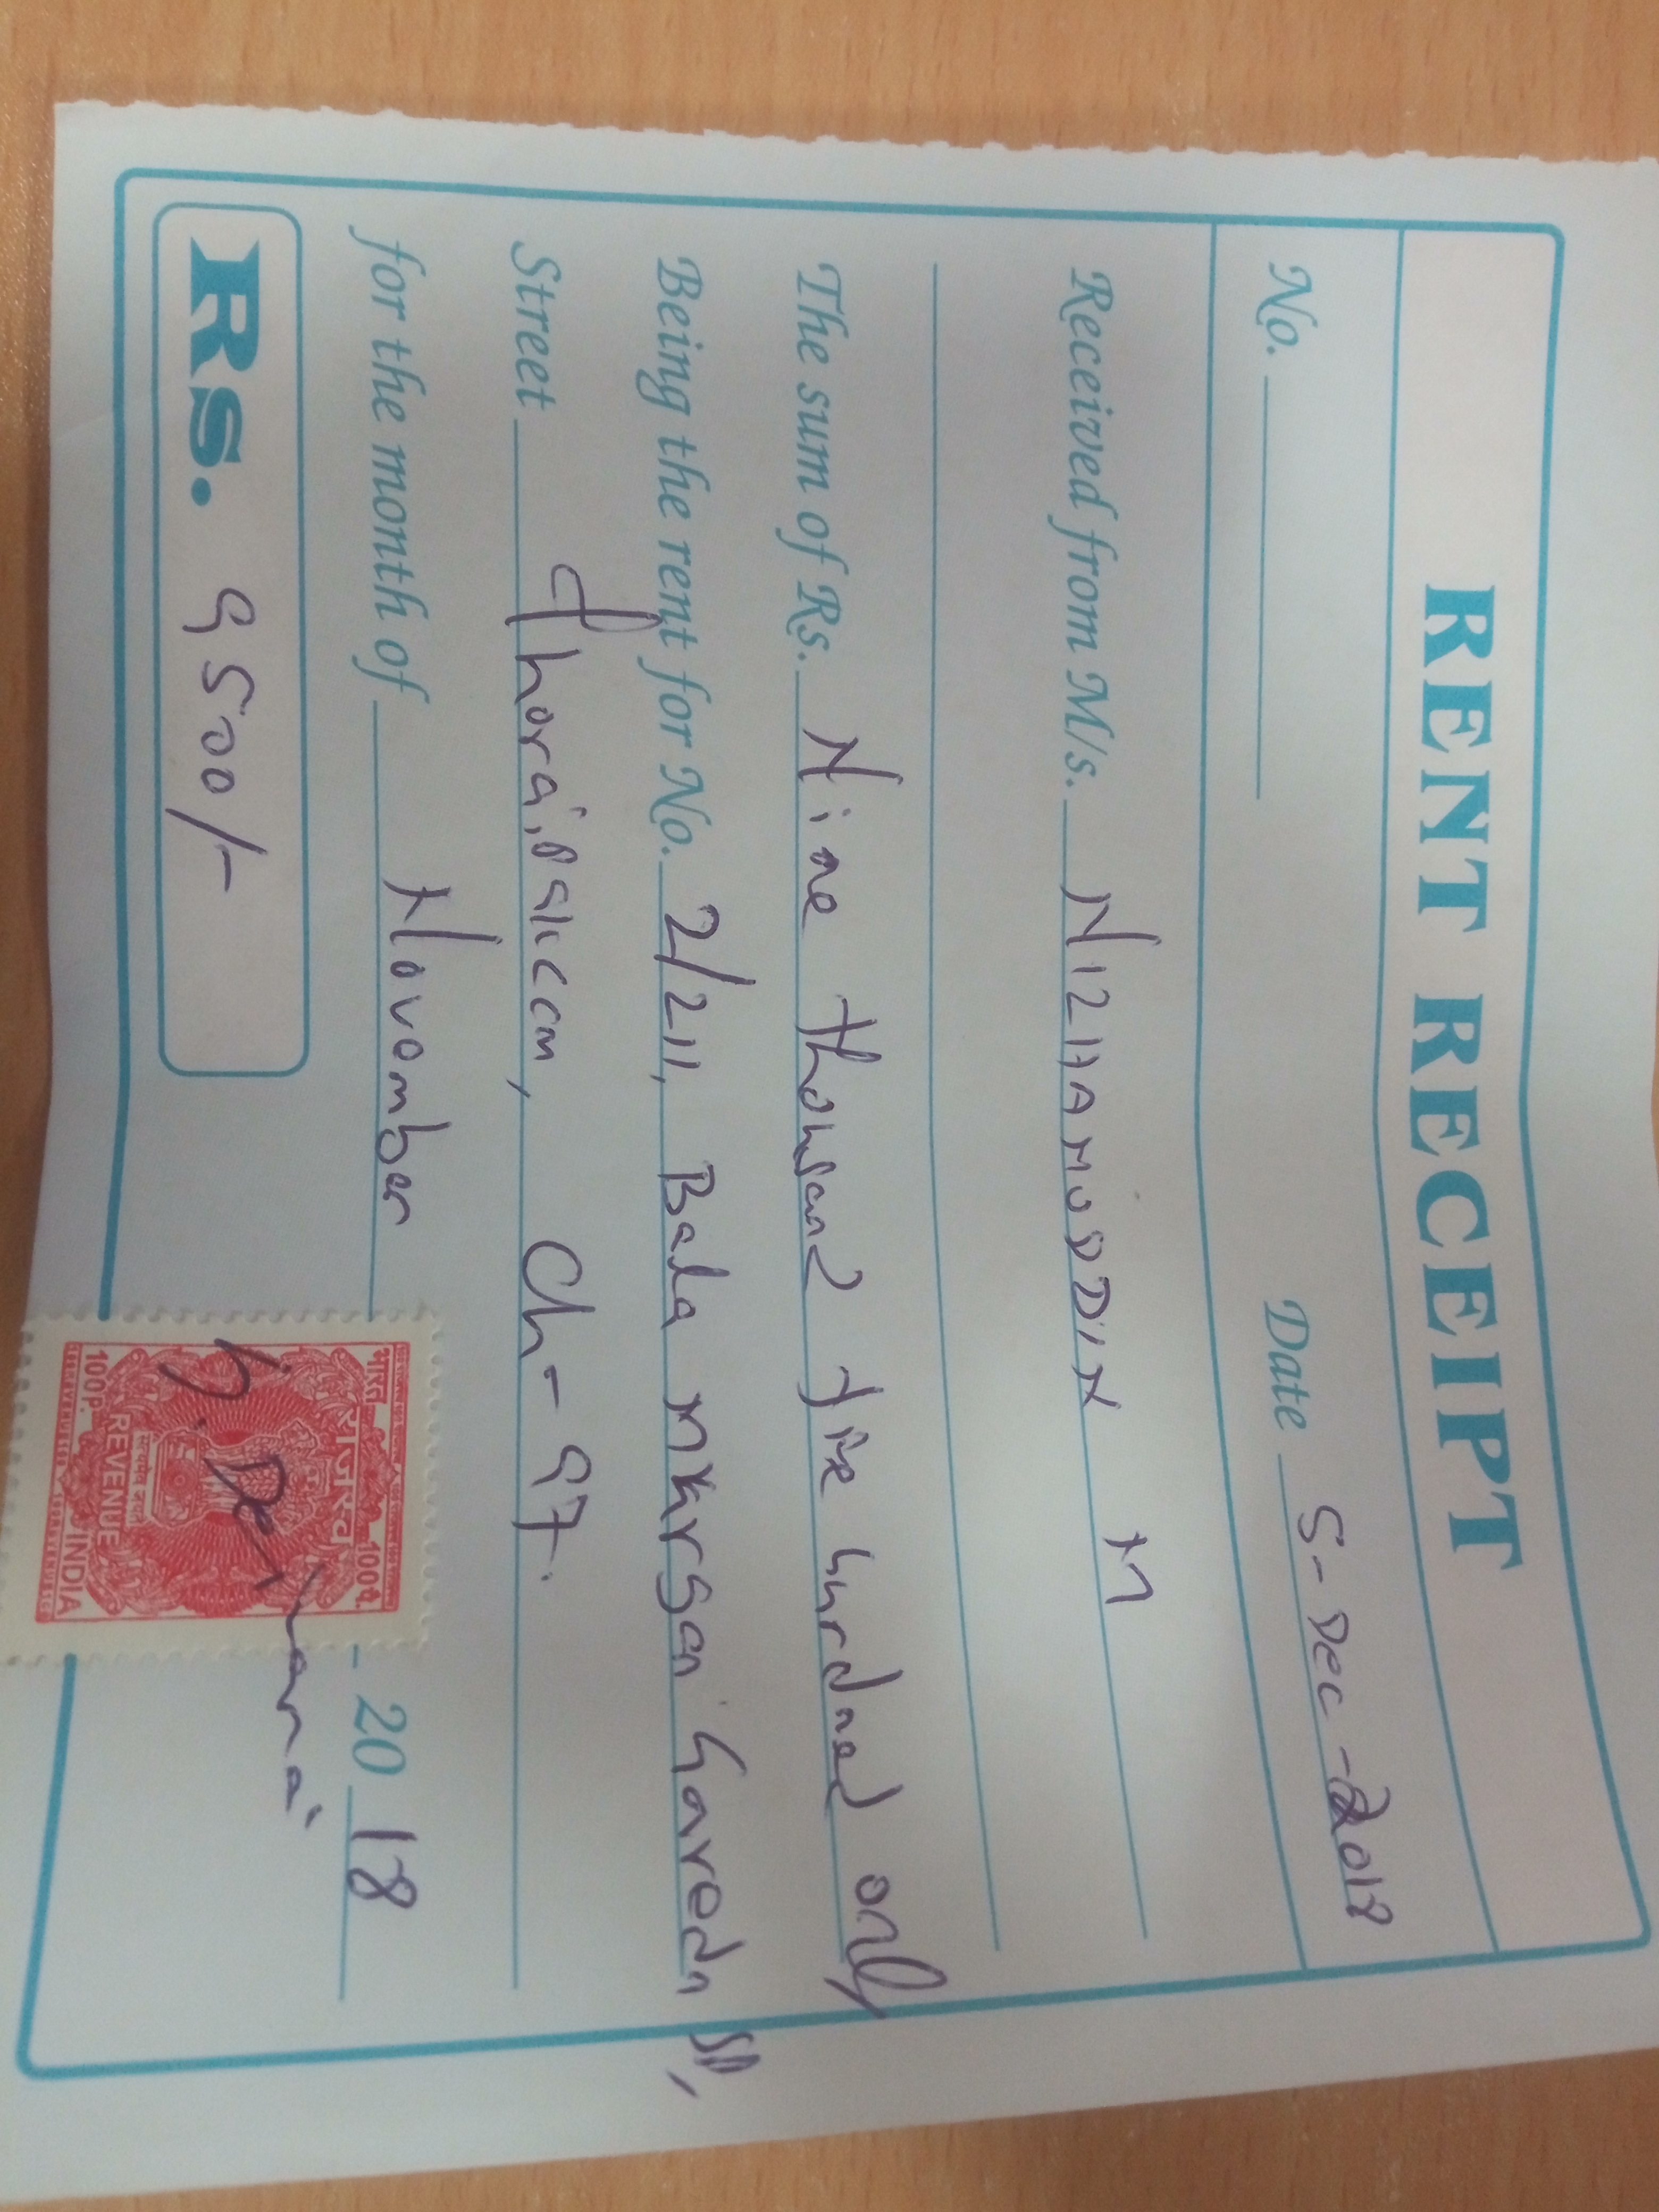 RENT RECEIPT
No. Date 5-Dec-2018
Received from M/s. NIZHAMUDDIN M
The sum of Rs. Nine thousand five hundred only
Being the rent for No. 2/211, Bala Garedn
Street thoraipakkam, Ch-97.
for the month of November 2018
Rs. 9500/-
भारत राजस्व 100 पै.
सत्यमेव जयते
100 P. REVENUE INDIA